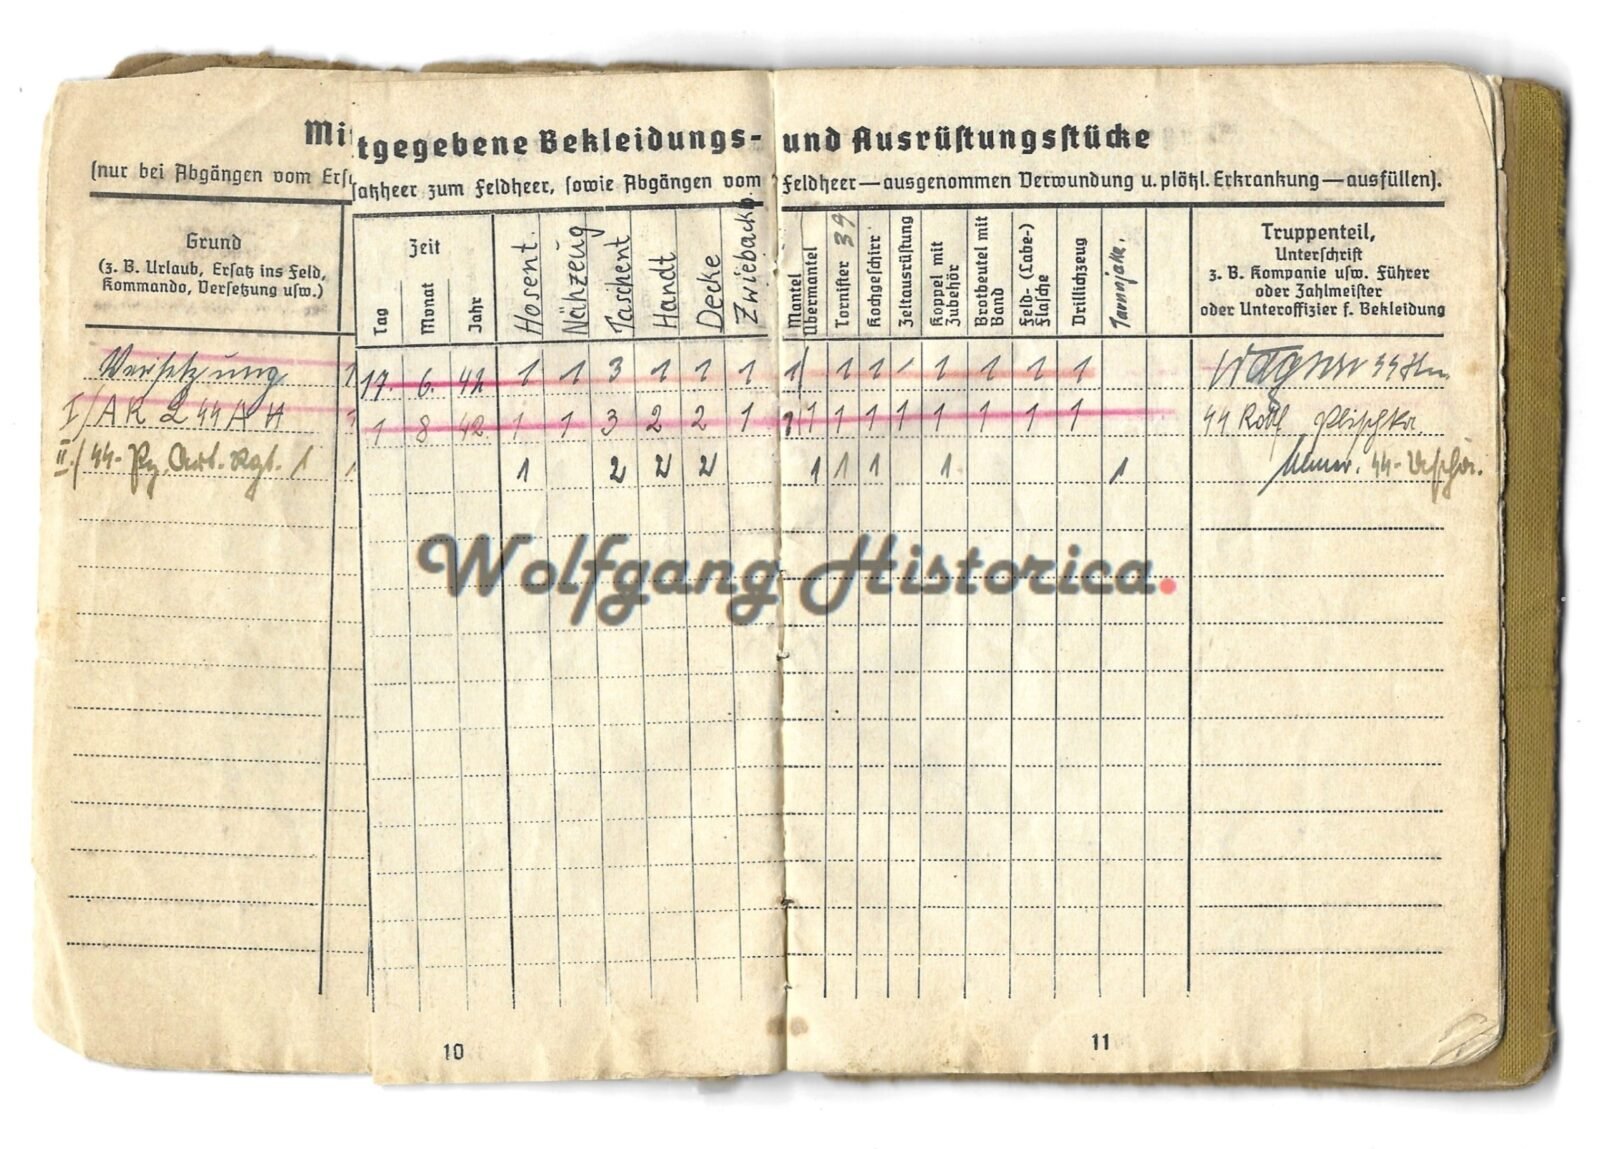 Mitgegebene Bekleidungs- und Ausrüstungsstücke
(nur bei Abgängen vom Ersatzheer zum Feldheer, sowie Abgängen vom Feldheer — ausgenommen Verwundung u. plötzl. Erkrankung — ausfüllen).
Grund
(z. B. Urlaub, Ersatz ins Feld,
Kommando, Versetzung usw.)
Zeit
Tag
Monat
Jahr
Hosent.
Nähzeug
Taschent
Handt
Decke
Zwiebackb.
Mantel
Übermantel
Tornister 39
Kochgeschirr
Zeltausrüstung
Koppel mit
Zubehör
Brotbeutel mit
Band
Feld- (Labe-)
Flasche
Drillichzeug
Tarnjake.
Truppenteil,
Unterschrift
z. B. Kompanie usw. Führer
oder Zahlmeister
oder Unteroffizier f. Bekleidung
Versetzung 17. 6. 42 1 1 3 1 1 1 1 1 1 1 1 1 1 1 Wagner
I/AR L ᛋᛋ A H 1 8 42 1 1 3 2 2 1 1 1 1 1 1 1 1 1 ᛋᛋ Rottf
II./ᛋᛋ-Pz. Art. Rgt. 1 1 2 2 2 1 1 1 1 1 ᛋᛋ-Uscha.
Wolfgang Historica.
10
11